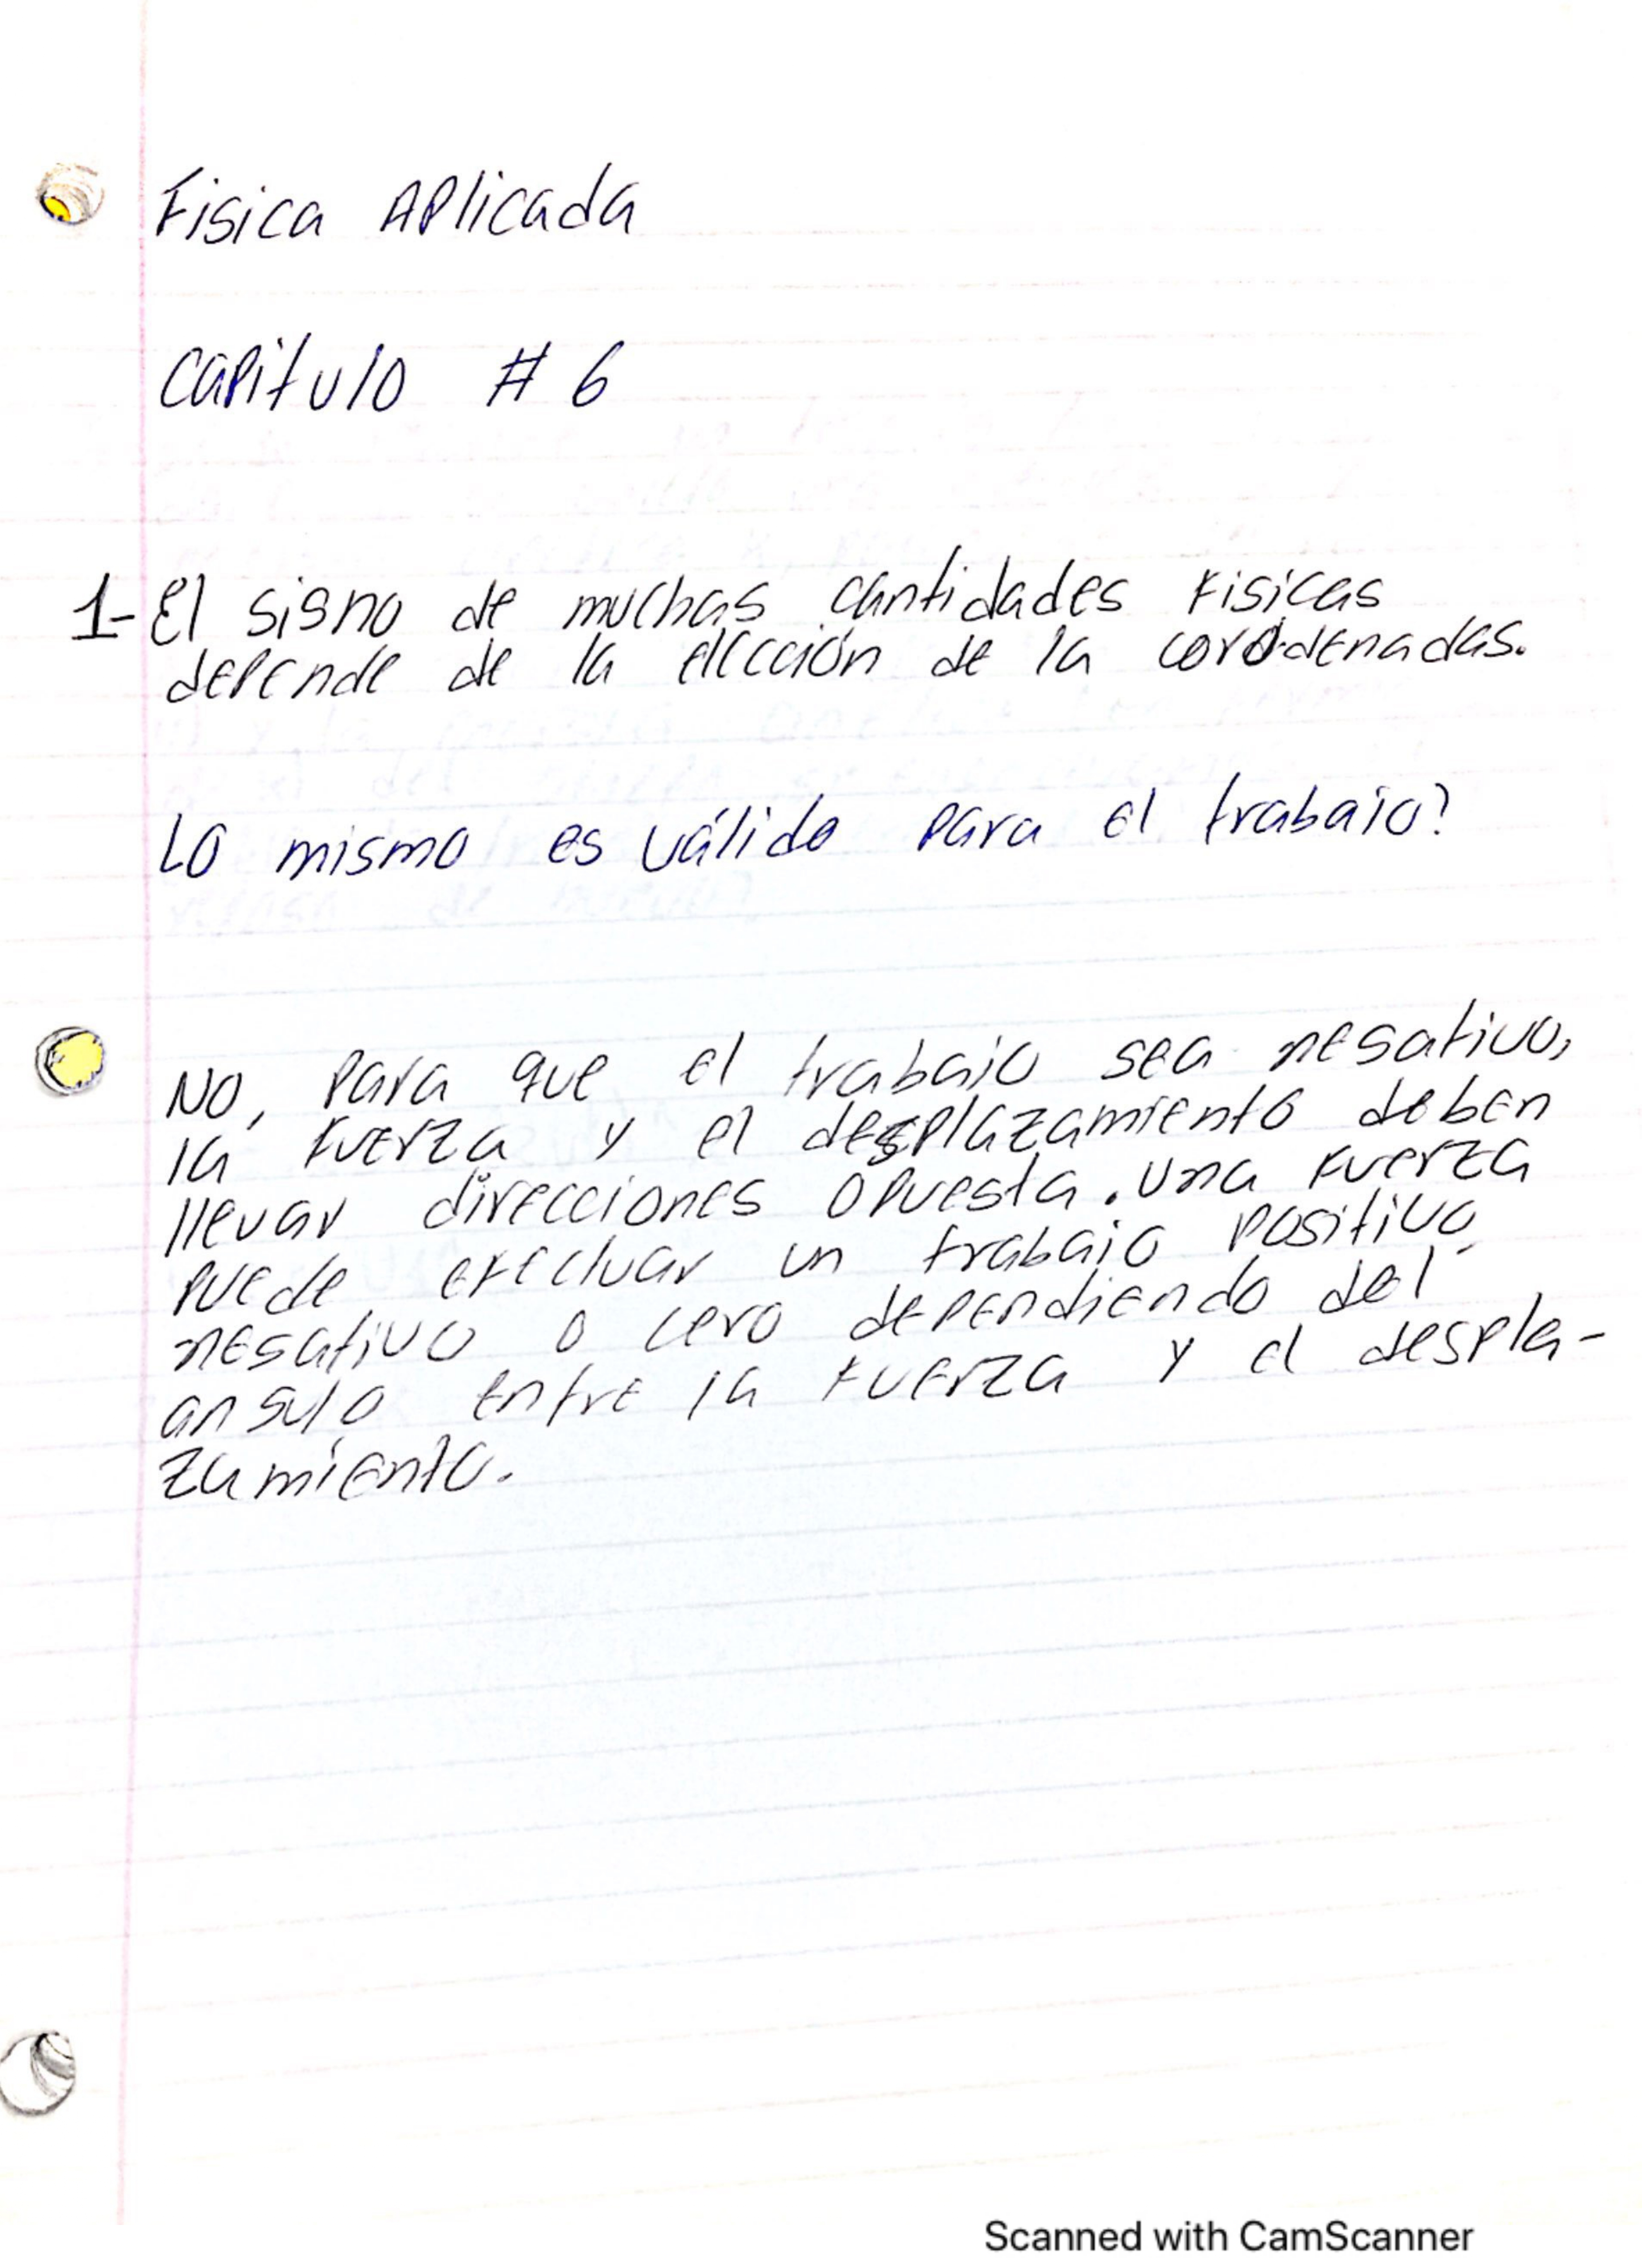 Fisica Aplicada
Capitulo # 6
1- El signo de muchas cantidades Fisicas
depende de la elección de la coordenadas.
Lo mismo es válido para el trabajo?
No, para que el trabajo sea negativo,
la Fuerza y el desplazamiento deben
llevar direcciones opuesta. Una Fuerza
puede efectuar un trabajo positivo,
negativo o cero dependiendo del
angulo entre la Fuerza y el despla-
zamiento.
Scanned with CamScanner